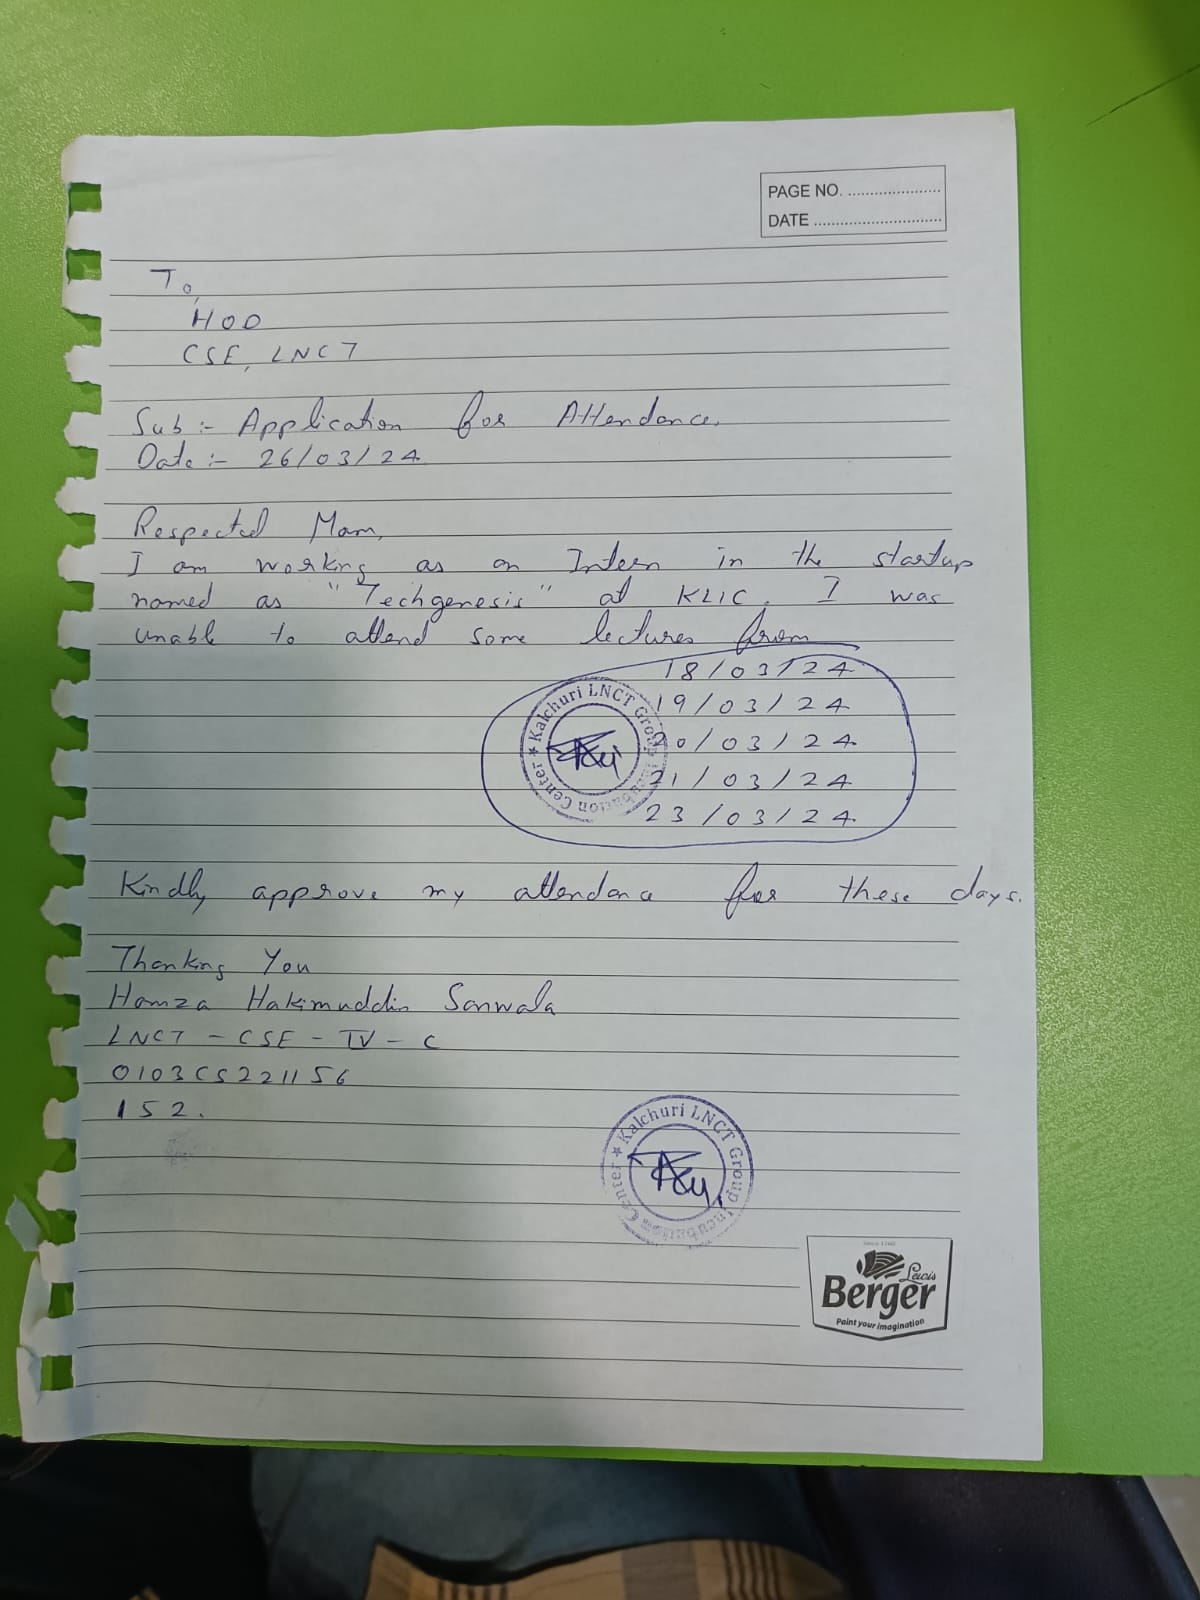 PAGE NO. ......................
DATE ..............................
To,
HOD
CSE, LNCT
Sub :- Application for Attendance.
Date :- 26/03/24
Respected Mam,
I am working as an Intern in the startup
named as "Techgenesis" at KLIC. I was
unable to attend some lectures from
18/03/24
19/03/24
20/03/24
21/03/24
23/03/24
★ Kalchuri LNCT Group Incubation Center
Kindly approve my attendance for these days.
Thanking You
Hamza Hakimuddin Sanwala
LNCT - CSE - IV - C
0103CS221156
152.
★ Kalchuri LNCT Group Incubation Center
Since 1760
Lewis
Berger
Paint your imagination